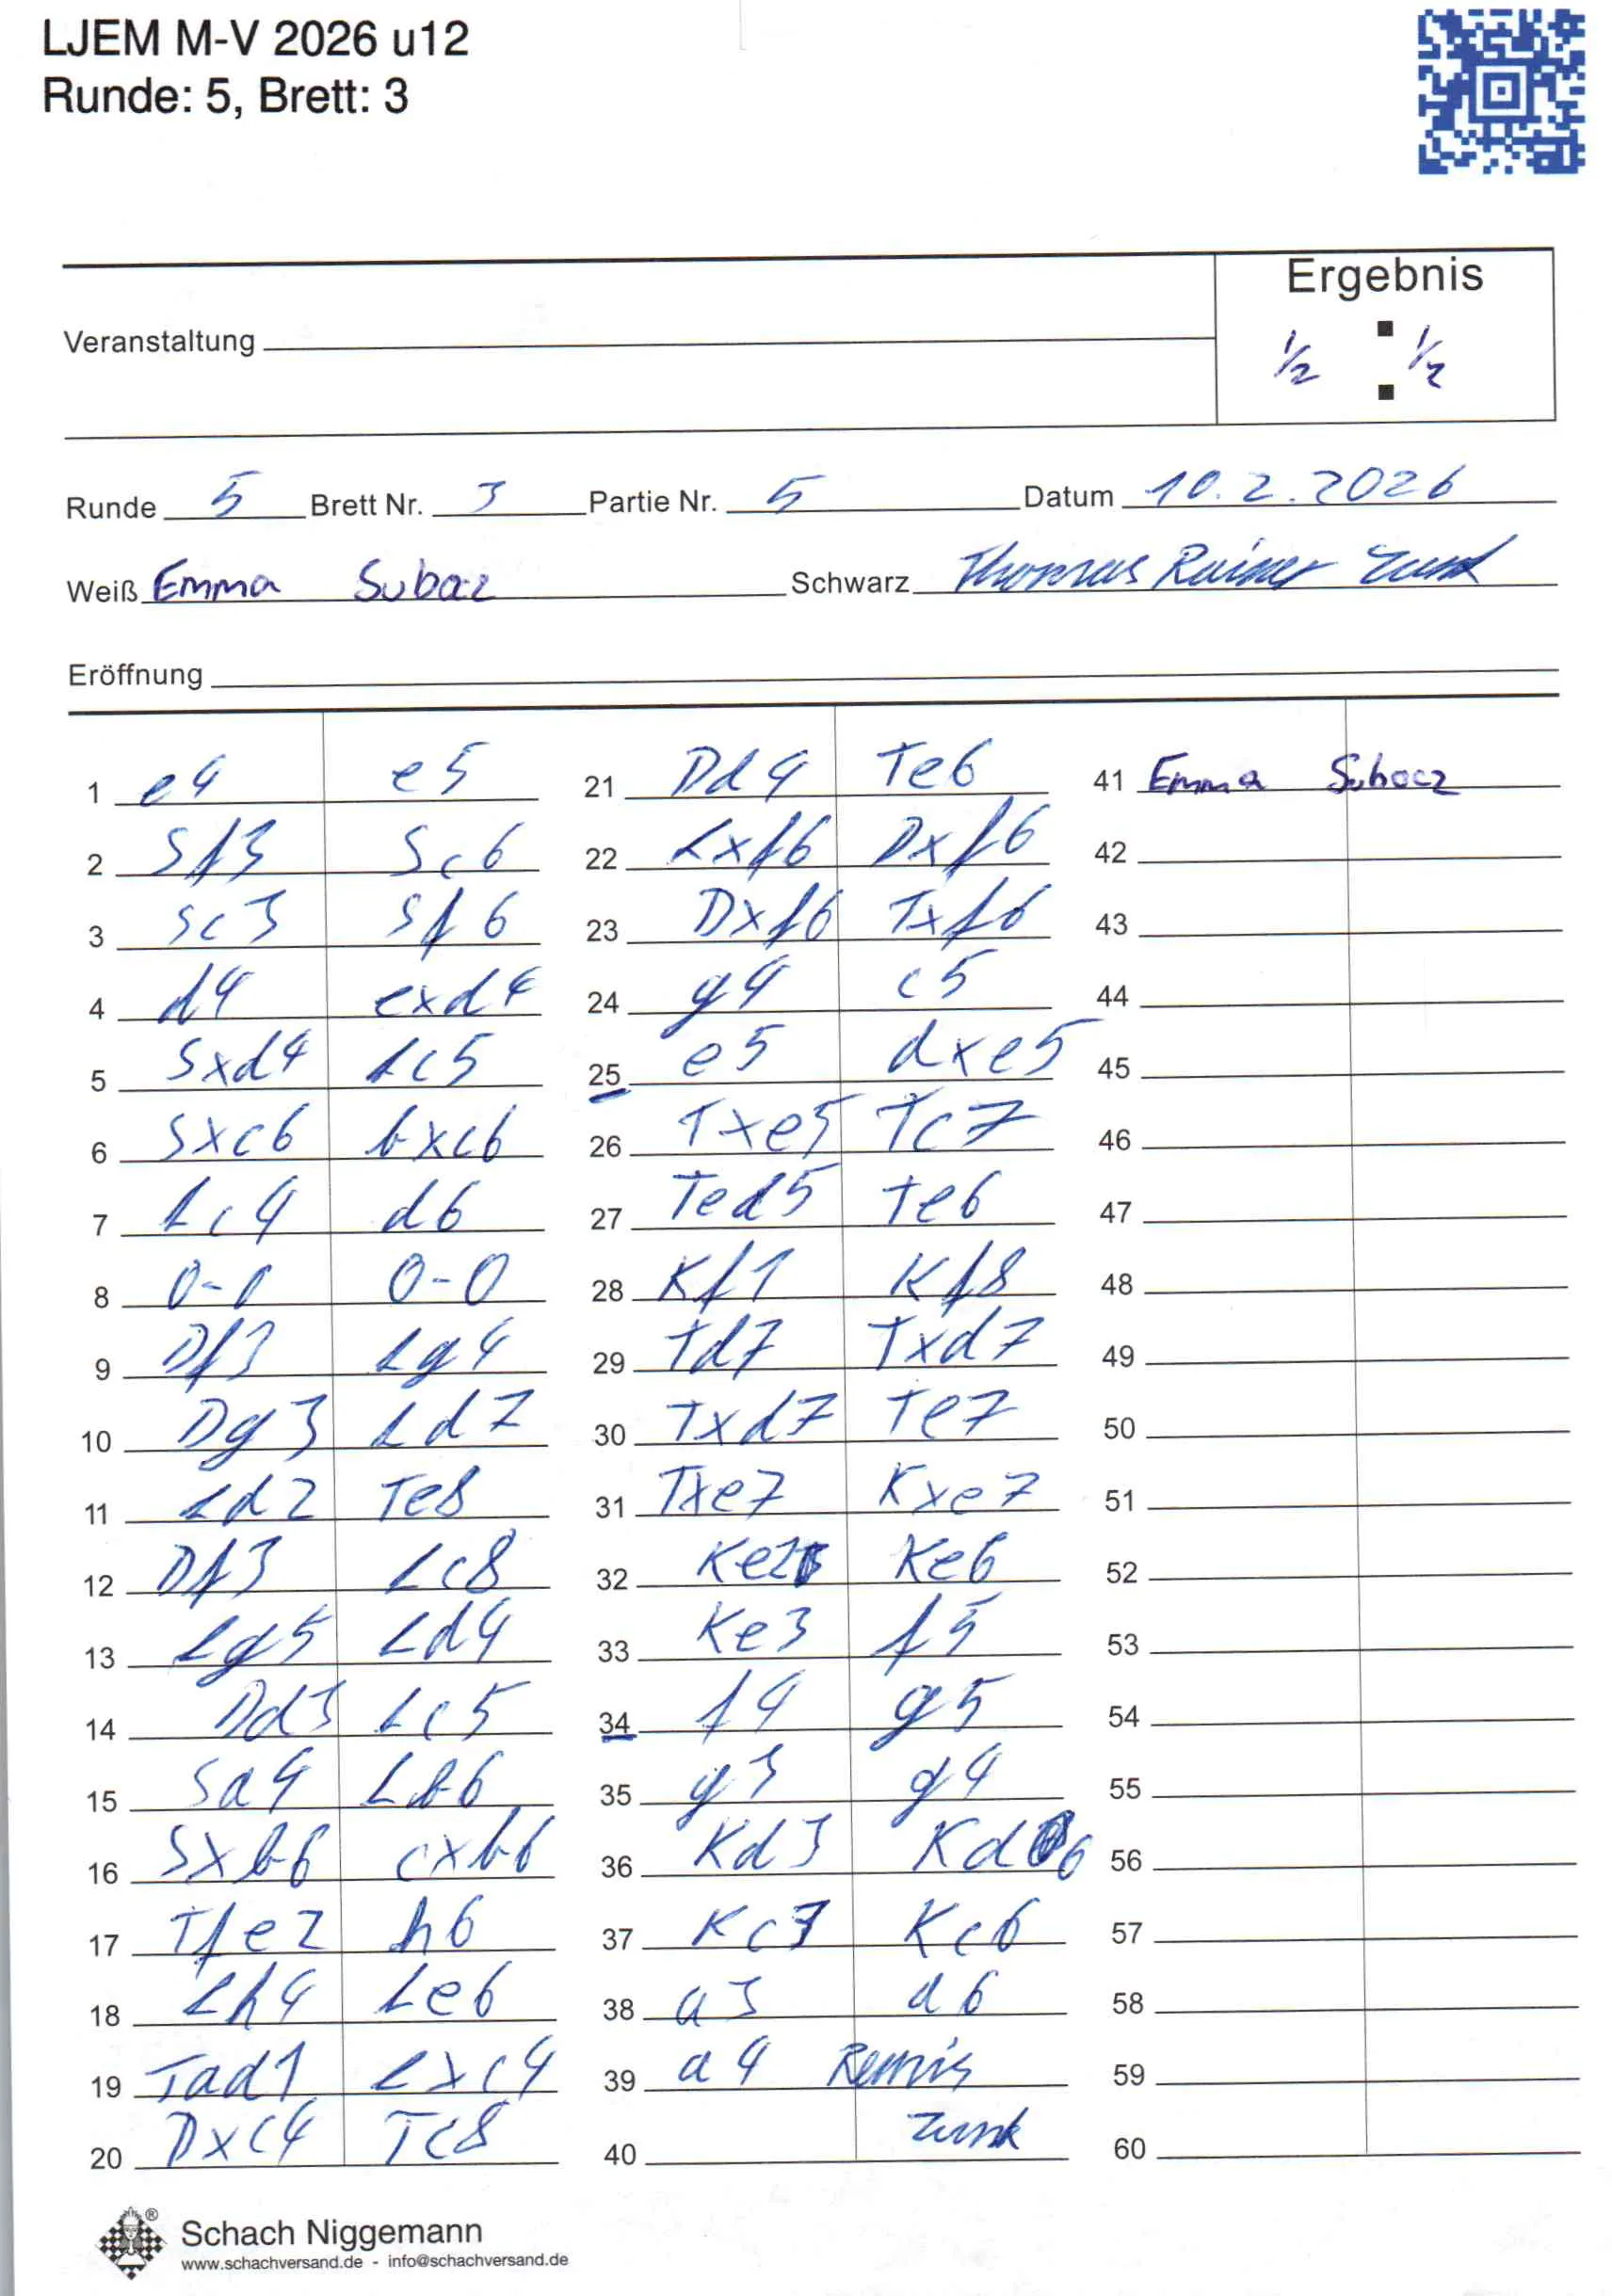 LJEM M-V 2026 u12
Runde: 5, Brett: 3
Ergebnis
Veranstaltung
½ : ½
Runde 5 Brett Nr. 3 Partie Nr. 5 Datum 10.2.2026
Weiß Emma Subaz Schwarz Thomas Rainer Zunk
Eröffnung
1 e4 e5
2 Sf3 Sc6
3 Sc3 Sf6
4 d4 exd4
5 Sxd4 Lc5
6 Sxc6 bxc6
7 Lc4 d6
8 0-0 0-0
9 Df3 Lg4
10 Dg3 Ld7
11 Ld2 Te8
12 Df3 Lc8
13 Lg5 Ld4
14 Dd3 Lc5
15 Sa4 Lb6
16 Sxb6 cxb6
17 Tfe2 h6
18 Lh4 Le6
19 Tad1 Lxc4
20 Dxc4 Tc8
21 Dd4 Te6
22 Lxf6 Dxf6
23 Dxf6 Txf6
24 g4 c5
25 e5 dxe5
26 Txe5 Tc7
27 Ted5 Te6
28 Kf1 Kf8
29 Td7 Txd7
30 Txd7 Te7
31 Txe7 Kxe7
32 Ke2 Ke6
33 Ke3 f5
34 f4 g5
35 g3 g4
36 Kd3 Kd6
37 Kc3 Kc6
38 a3 a6
39 a4 Remis
40 Zunk
41 Emma Subacz
42
43
44
45
46
47
48
49
50
51
52
53
54
55
56
57
58
59
60
Schach Niggemann
www.schachversand.de - info@schachversand.de